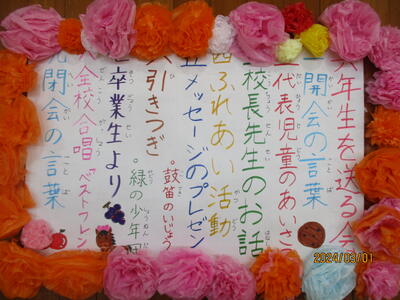 年生を送る会
一開会の言葉
二代表児童のあいさ
三校長先生のお話
四ふれあい活動
五メッセージのプレゼン
引きつぎ
。鼓笛のいじょう
。緑の少年団
卒業生より
全校合唱 ベストフレン
閉会の言葉
2024/03/01